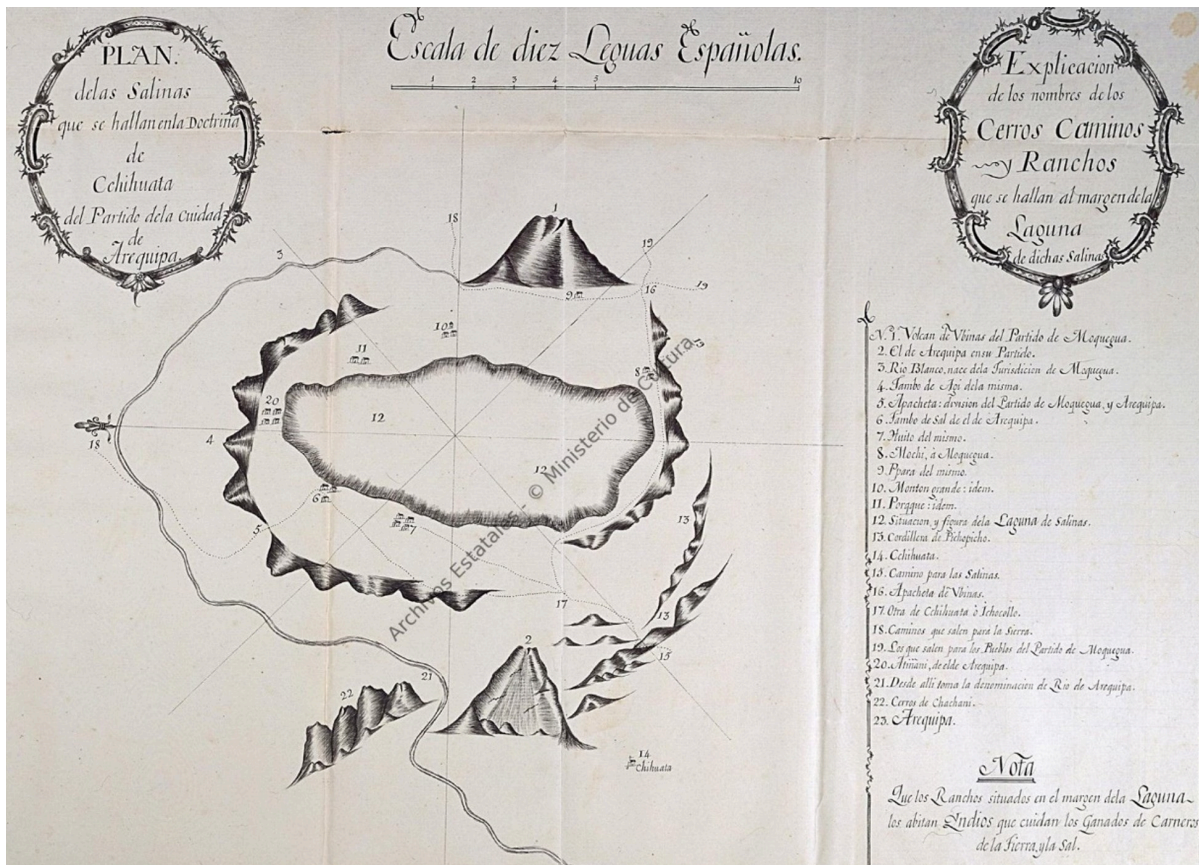 PLAN.
delas Salinas
que se hallan enla Doctrina
de
Cchihuata
del Partido dela Cuidad
de
Arequipa.
Escala de diez Leguas Españolas.
1 2 3 4 5 10
Explicacion
de los nombres de los
Cerros Caminos
y Ranchos
que se hallan al margen dela
Laguna
de dichas Salinas
N. 1. Volcan de Vbinas del Partido de Moquegua.
2. El de Arequipa ensu Partido.
3. Rio Blanco, nace dela Jurisdicion de Moquegua.
4. Tambo de Agi dela misma.
5. Apacheta: division del Partido de Moquegua, y Arequipa.
6. Tambo de Sal de el de Arequipa.
7. Huito del mismo.
8. Mochi, á Moquegua.
9. Ppara del mismo.
10. Monton grande: idem.
11. Porqque: idem.
12. Situacion, y figura dela Laguna de Salinas.
13. Cordillera de Pichopicho.
14. Cchihuata.
15. Camino para las Salinas.
16. Apacheta de Vbinas.
17. Otra de Cchihuata ò Ichocollo.
18. Caminos que salen para la Sierra.
19. Los que salen para los Pueblos del Partido de Moquegua.
20. de el de Arequipa.
21. Desde alli toma la denominacion de Rio de Arequipa.
22. Cerros de Chachani.
23. Arequipa.
Nota
Que los Ranchos situados en el margen dela Laguna
los abitan Yndios que cuidan los Ganados de Carneros
de la Tierra, yla Sal.
1
18
19
3
9
16
19
10
11
8
20
12
18
4
12
6
7
5
13
17
13
2
15
21
22
14
Chihuata
Archivos Estatales - © Ministerio de Cultura